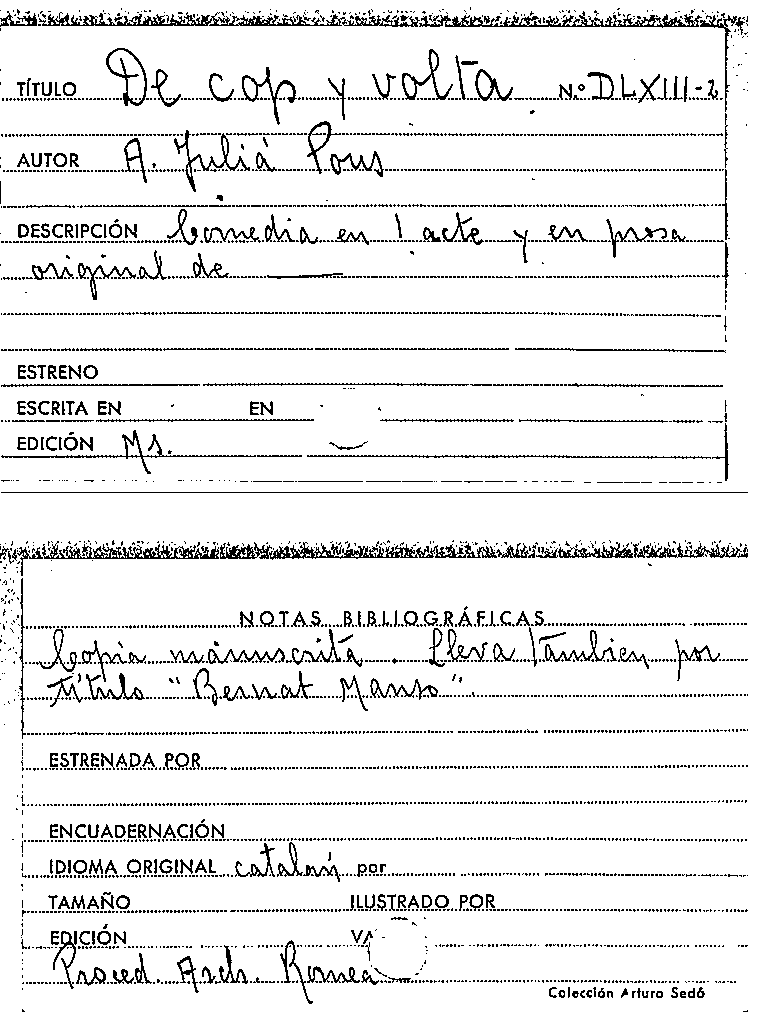 TÍTULO De cop y volta N.º DLXIII-2
AUTOR A. Juliá Pous
DESCRIPCIÓN Comedia en 1 acte y en prosa
original de ____
ESTRENO
ESCRITA EN EN
EDICIÓN Ms.
NOTAS BIBLIOGRÁFICAS
Copia manuscrita. Lleva tambien por
título "Bernat Manso".
ESTRENADA POR
ENCUADERNACIÓN
IDIOMA ORIGINAL catalán por
TAMAÑO ILUSTRADO POR
EDICIÓN
Proced. Arch. Romea
Colección Arturo Sedó